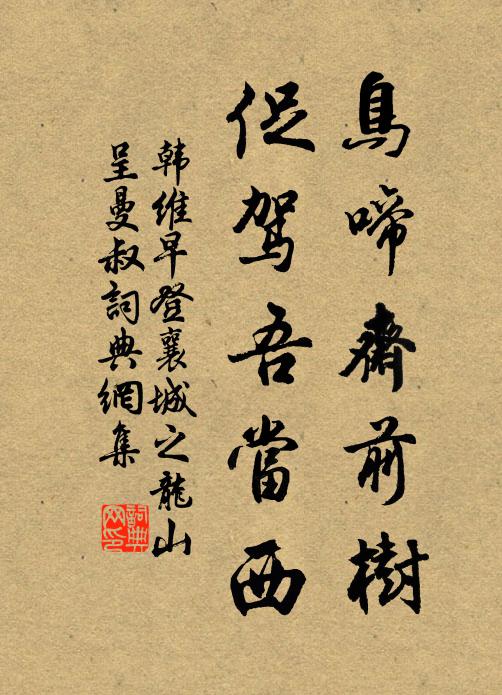 鳥啼齋前樹
促駕吾當西
韩维早登襄城之龍山
呈曼叔詞典網集
詞典网印